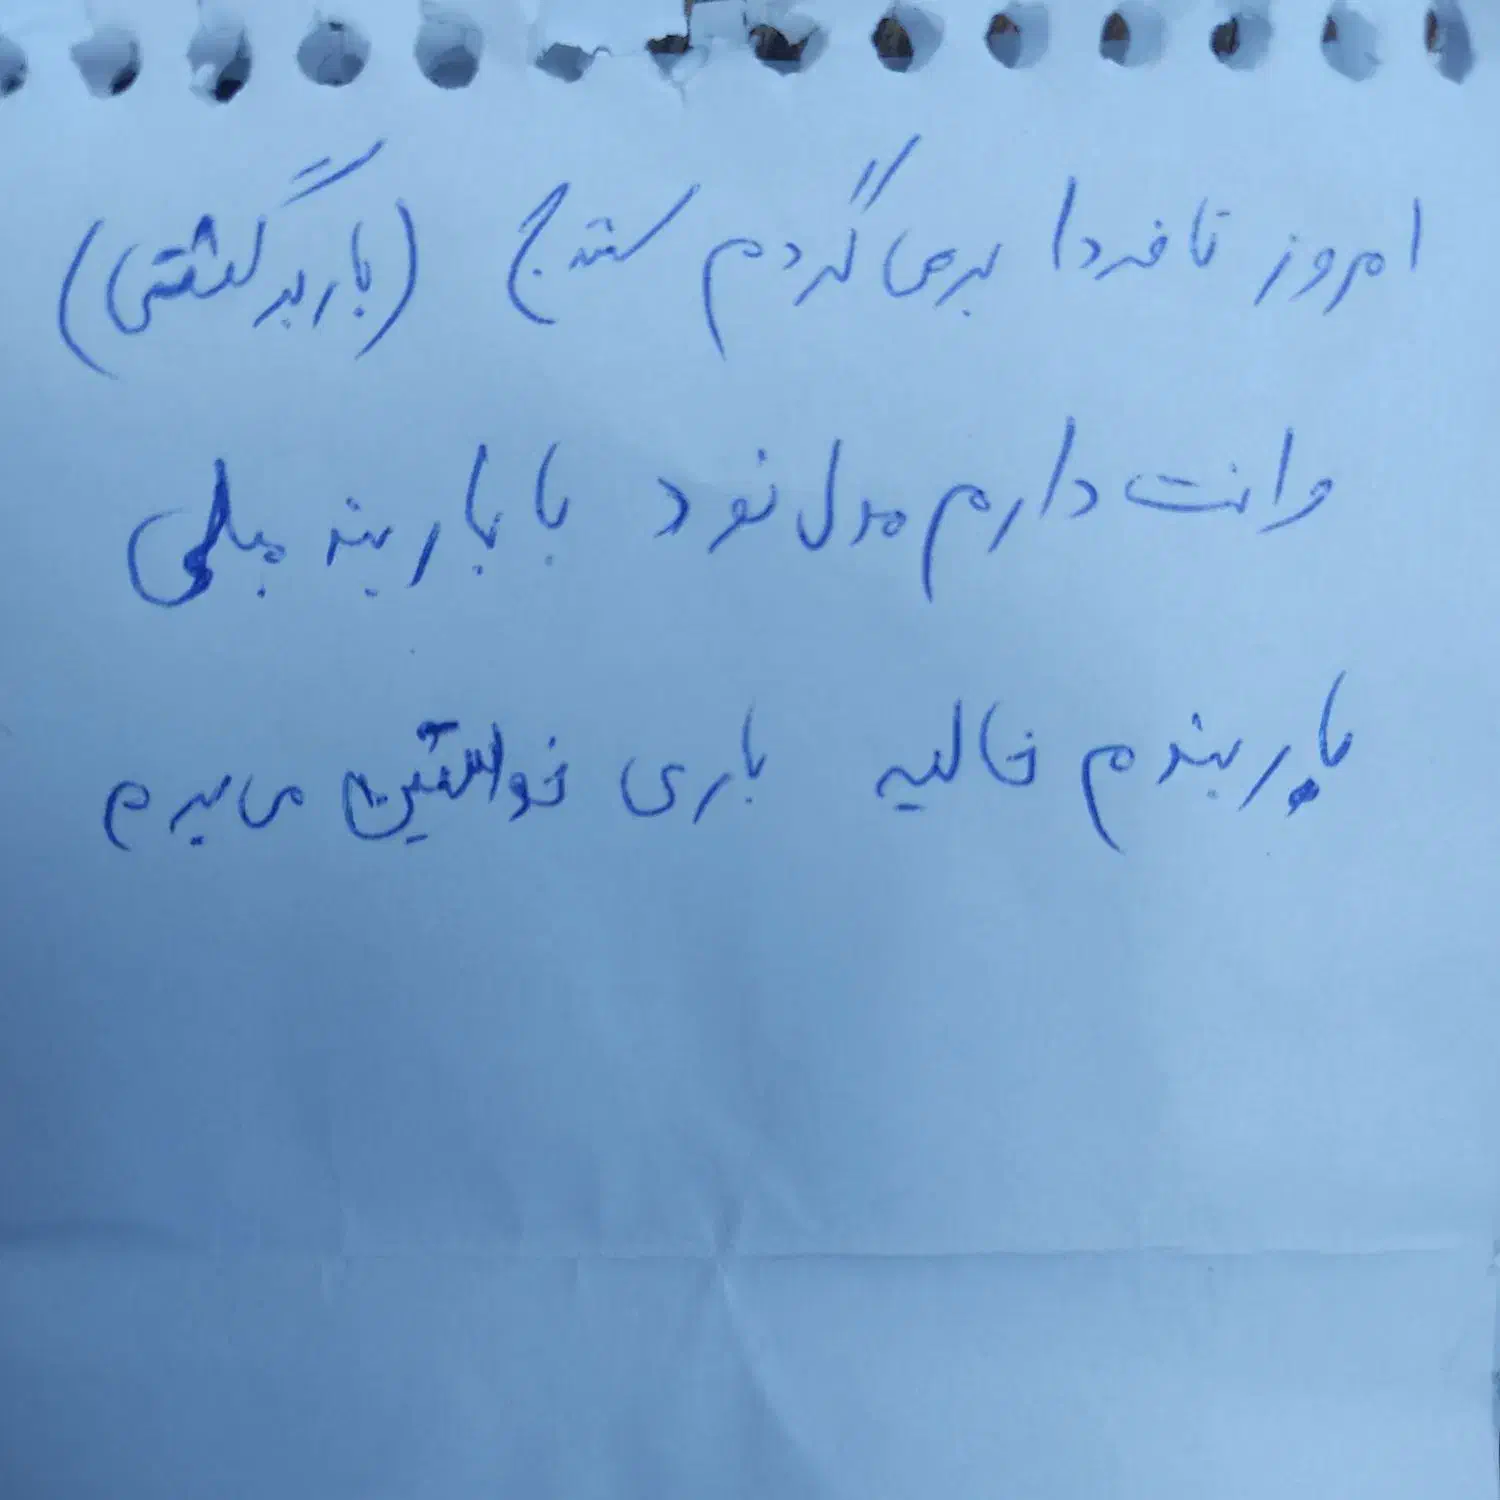 امروز تا فردا برمی گردم سنندج (بار برگشتی)
وانت دارم مدل نود با باربند مبلی
باربندم خالیه باری خواستین می برم